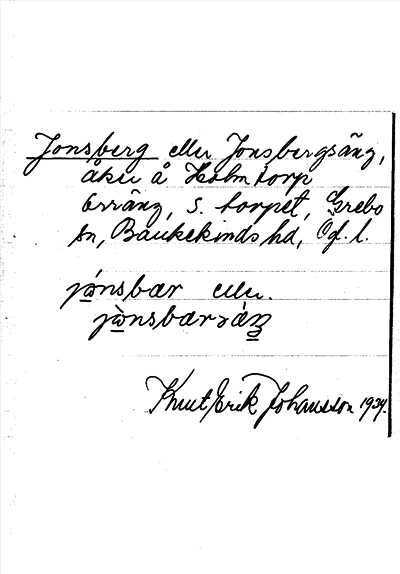 Jonsberg eller Jonsbergsäng,
åker å Holmtorp
ärräng, s. torpet, Grebo
sn, Bankekinds hd, Ög. l.
jȯnsbær eller
jònsbærsäŋ
Knut Erik Johansson 1934.